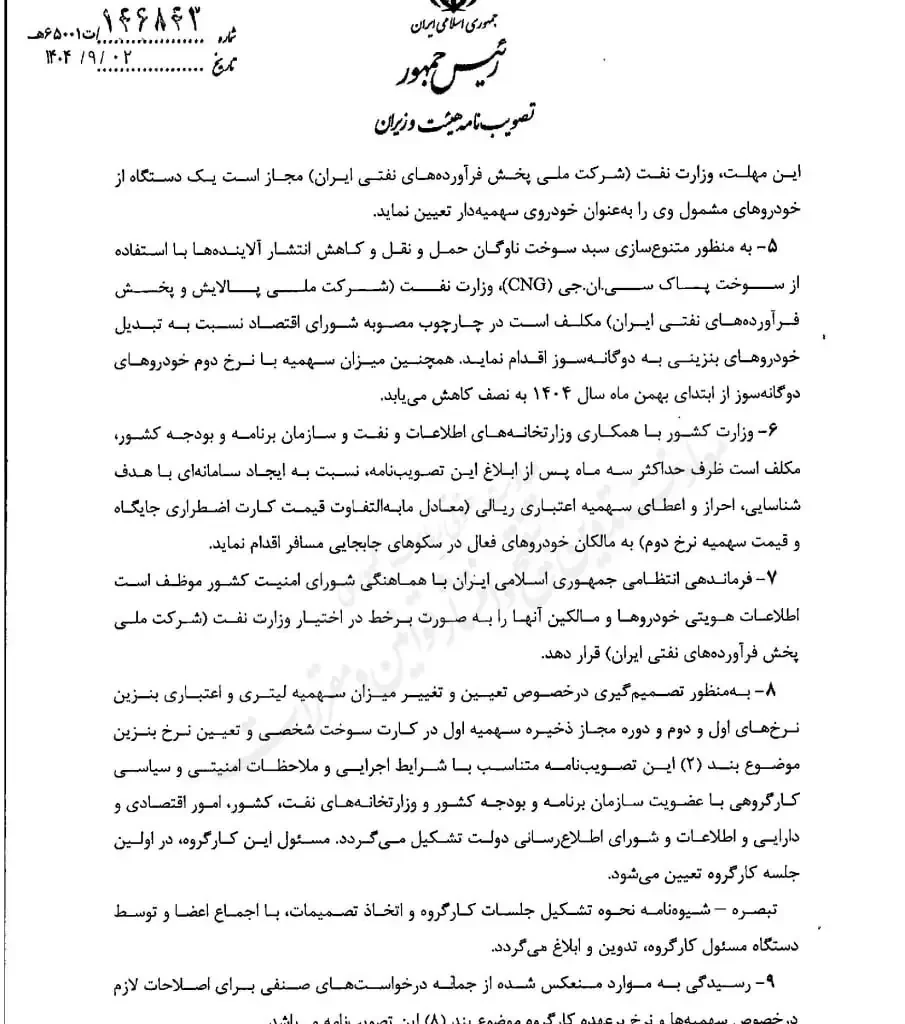 جمهوری اسلامی ایران
رئیس جمهور
تصویب‌نامه هیئت وزیران
شماره ۱۴۶۸۴۳/ت۶۵۰۰۱هـ
تاریخ ۱۴۰۴/۹/۰۲
این مهلت، وزارت نفت (شرکت ملی پخش فرآورده‌های نفتی ایران) مجاز است یک دستگاه از
خودروهای مشمول وی را به‌عنوان خودروی سهمیه‌دار تعیین نماید.
۵- به منظور متنوع‌سازی سبد سوخت ناوگان حمل و نقل و کاهش انتشار آلاینده‌ها با استفاده
از سوخت پاک سی.ان.جی (CNG)، وزارت نفت (شرکت ملی پالایش و پخش
فرآورده‌های نفتی ایران) مکلف است در چارچوب مصوبه شورای اقتصاد نسبت به تبدیل
خودروهای بنزینی به دوگانه‌سوز اقدام نماید. همچنین میزان سهمیه با نرخ دوم خودروهای
دوگانه‌سوز از ابتدای بهمن ماه سال ۱۴۰۴ به نصف کاهش می‌یابد.
۶- وزارت کشور با همکاری وزارتخانه‌های اطلاعات و نفت و سازمان برنامه و بودجه کشور،
مکلف است ظرف حداکثر سه ماه پس از ابلاغ این تصویب‌نامه، نسبت به ایجاد سامانه‌ای با هدف
شناسایی، احراز و اعطای سهمیه اعتباری ریالی (معادل مابه‌التفاوت قیمت کارت اضطراری جایگاه
و قیمت سهمیه نرخ دوم) به مالکان خودروهای فعال در سکوهای جابجایی مسافر اقدام نماید.
۷- فرماندهی انتظامی جمهوری اسلامی ایران با هماهنگی شورای امنیت کشور موظف است
اطلاعات هویتی خودروها و مالکین آنها را به صورت برخط در اختیار وزارت نفت (شرکت ملی
پخش فرآورده‌های نفتی ایران) قرار دهد.
۸- به‌منظور تصمیم‌گیری درخصوص تعیین و تغییر میزان سهمیه لیتری و اعتباری بنزین
نرخ‌های اول و دوم و دوره مجاز ذخیره سهمیه اول در کارت سوخت شخصی و تعیین نرخ بنزین
موضوع بند (۲) این تصویب‌نامه متناسب با شرایط اجرایی و ملاحظات امنیتی و سیاسی
کارگروهی با عضویت سازمان برنامه و بودجه کشور و وزارتخانه‌های نفت، کشور، امور اقتصادی و
دارایی و اطلاعات و شورای اطلاع‌رسانی دولت تشکیل می‌گردد. مسئول این کارگروه، در اولین
جلسه کارگروه تعیین می‌شود.
تبصره – شیوه‌نامه نحوه تشکیل جلسات کارگروه و اتخاذ تصمیمات، با اجماع اعضا و توسط
دستگاه مسئول کارگروه، تدوین و ابلاغ می‌گردد.
۹- رسیدگی به موارد منعکس شده از جمله درخواست‌های صنفی برای اصلاحات لازم
درخصوص سهمیه‌ها و نرخ برعهده کارگروه موضوع بند (۸) این تصویب‌نامه می‌باشد.